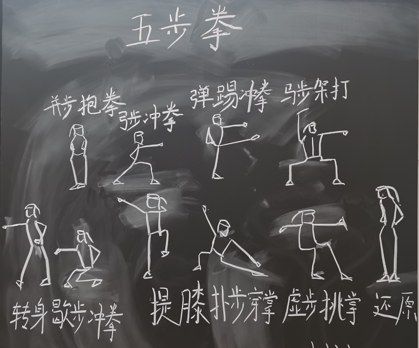 五步拳
并步抱拳
弓步冲拳
弹踢冲拳
马步架打
转身歇步冲拳
提膝扑步穿掌
虚步挑掌
还原